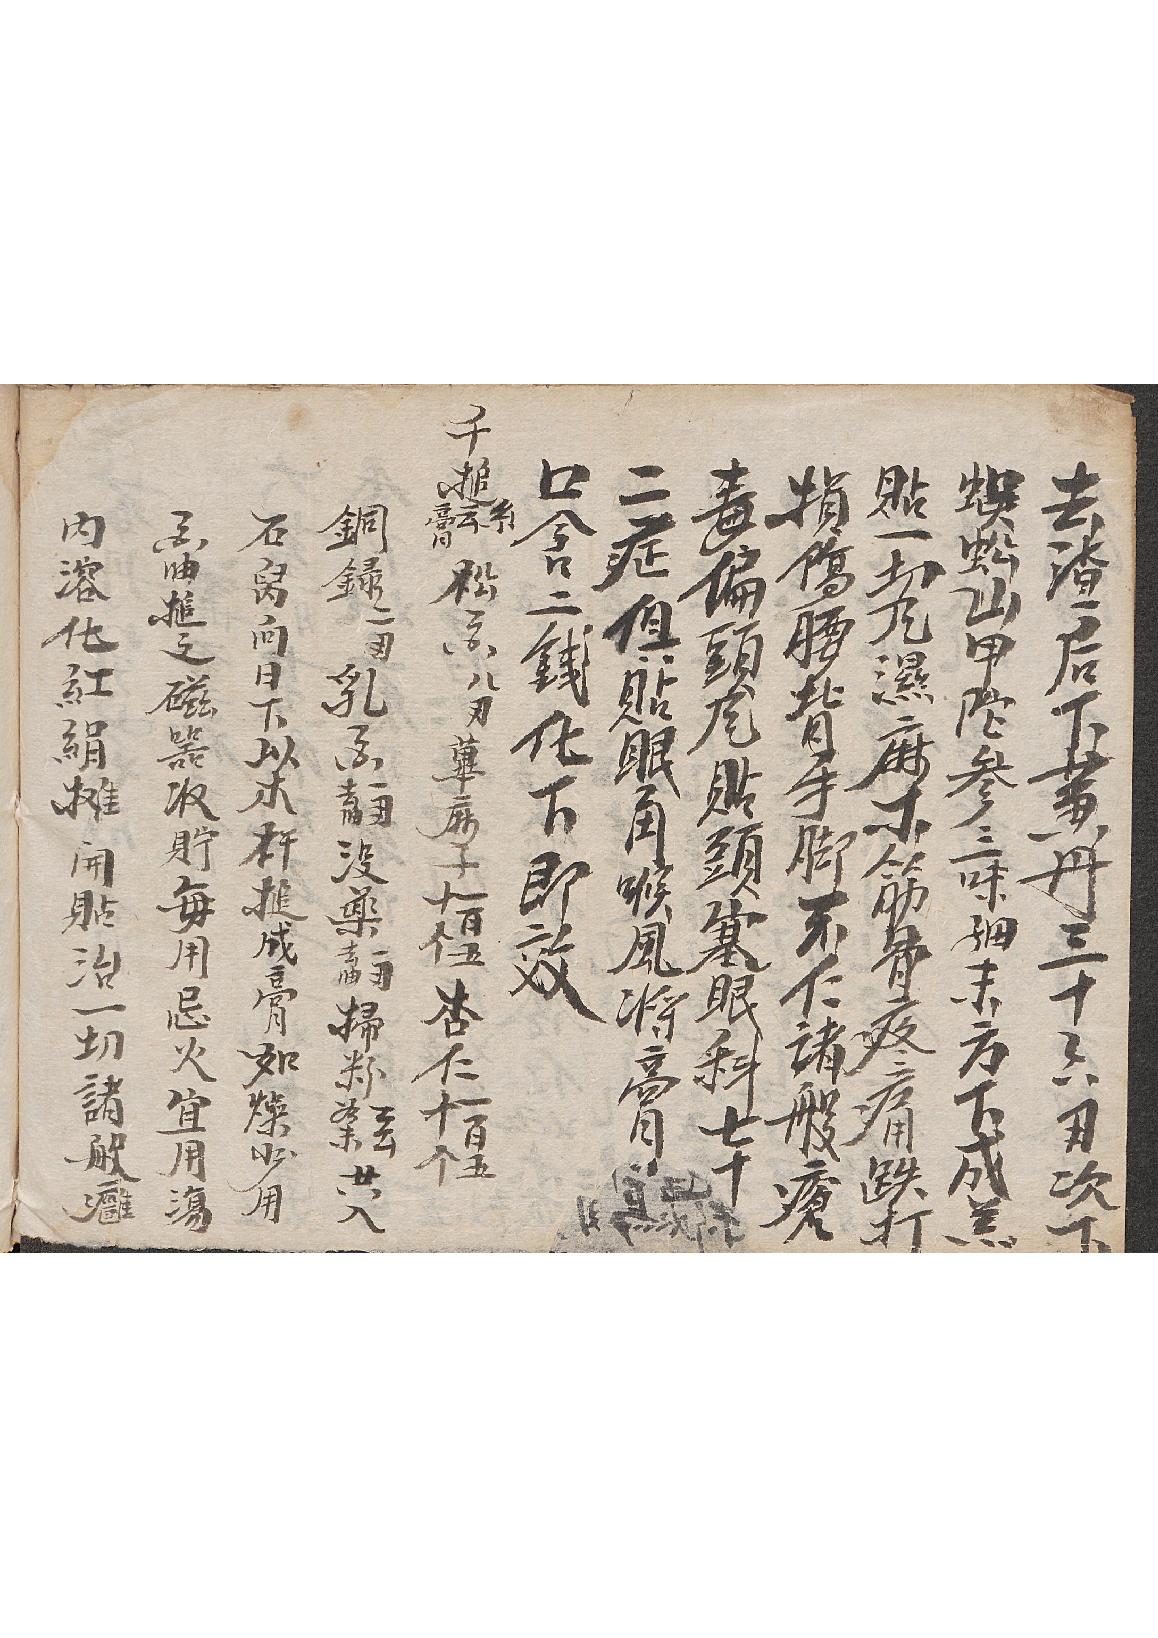 去渣后下黃丹三十六刃次下
蜈蚣山甲陀參三味細末方下成羔
貼一切风濕麻木筋骨疼痛跌打
損傷腰背手脚不仁諸般瘡
毒偏頭风貼頭塞眼科七十
二症但貼眼角喉風將膏
口含二錢化下即效
千搥膏 松香八刃萆麻子一百五十个杏仁一百五十个
銅錄二刃乳香没藥掃粉茶廿八
石臼向日下以木杵搥成膏如燥少用
香油搥之磁器收貯每用忌火宜用湯
内溶化紅絹攤開貼治一切諸般癰